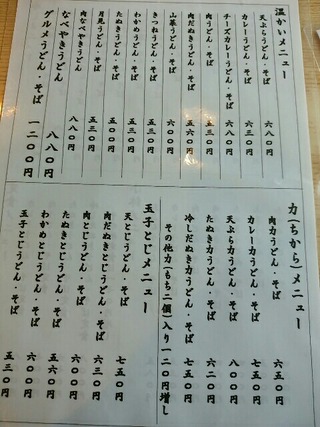 温かいメニュー
天ぷらうどん・そば 六八〇
カレーうどん・そば 六三〇
チーズカレーうどん・そば 六八〇
肉うどん・そば 五三〇
肉だぬきうどん・そば 五六〇
山菜うどん・そば 六〇〇
きつねうどん・そば 五三〇
わかめうどん・そば 五三〇
たぬきうどん・そば
月見うどん・そば 五三〇
肉なべやきうどん 八八〇
なべやきうどん 八八〇円
グルメうどん・そば 一二〇〇円
力(ちから)メニュー
肉力うどん・そば 六五〇
カレー力うどん・そば 七五〇
天ぷら力うどん・そば 八〇〇
たぬき力うどん・そば 六〇〇
冷しだぬき力うどん・そば 七五〇
その他力(もち二個)入り一二〇円増し
玉子とじメニュー
天とじうどん・そば 七五〇
肉だぬきとじうどん・そば 六三〇
肉とじうどん・そば 六〇〇
たぬきとじうどん・そば 五六〇
わかめとじうどん・そば 六〇〇
玉子とじうどん・そば 五三〇